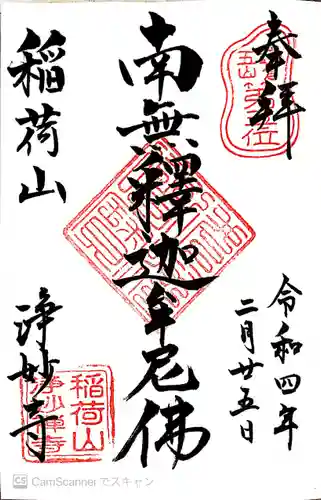 奉拝
令和四年
二月廿五日
南無釋迦牟尼佛
稲荷山
浄妙寺
稲荷山
浄妙禅寺
CS CamScanner でスキャン